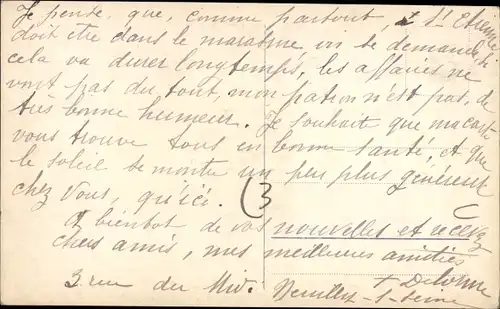 Je pense, que, comme partout, St Etienne
doit être dans le marasme, on se demande si
cela va durer longtemps, les affaires ne
vont pas du tout, mon patron n'est pas, de
très bonne humeur. Je souhaite que ma carte
vous trouve tous en bonne santé, et que
le soleil se montre un peu plus généreux
chez vous, qu'ici. (3
A bientôt, de vos nouvelles et recevez
chers amis, mes meilleures amitiés
3 rue du Midi. Neuilly-s-Seine